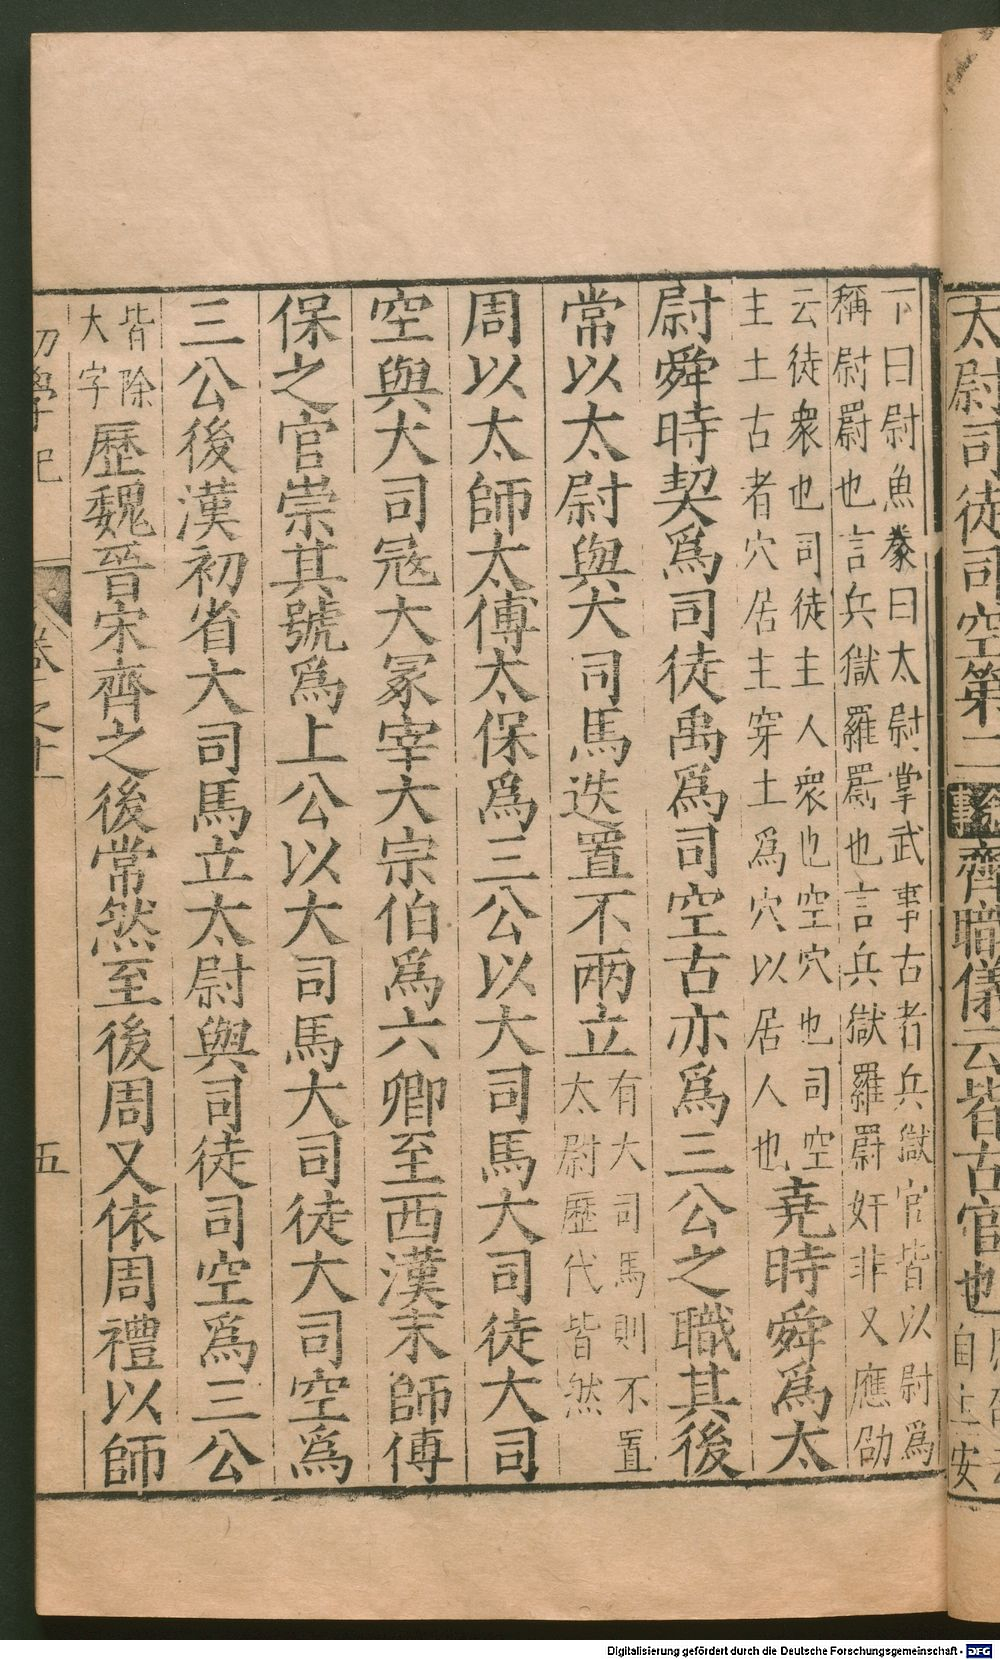 太尉司徒司空第二 敘事 齊職儀云皆古官也
自上安
下曰尉魚豢曰太尉掌武事古者兵獄官皆以尉爲
稱尉罻也言兵獄羅罻也言兵獄羅罻奸非又應劭
云徒衆也司徒主人衆也空穴也司空
主土古者穴居主穿土爲穴以居人也
堯時舜爲太
尉舜時契爲司徒禹爲司空古亦爲三公之職其後
常以太尉與大司馬迭置不兩立
有大司馬則不置
太尉歷代皆然
周以太師太傅太保爲三公以大司馬大司徒大司
空與大司冦大冢宰大宗伯爲六卿至西漢末師傅
保之官崇其號爲上公以大司馬大司徒大司空爲
三公後漢初省大司馬立太尉與司徒司空爲三公
皆除
大字
歷魏晉宋齊之後常然至後周又依周禮以師
初學記
卷之十一
五
Digitalisierung gefördert durch die Deutsche Forschungsgemeinschaft - DFG